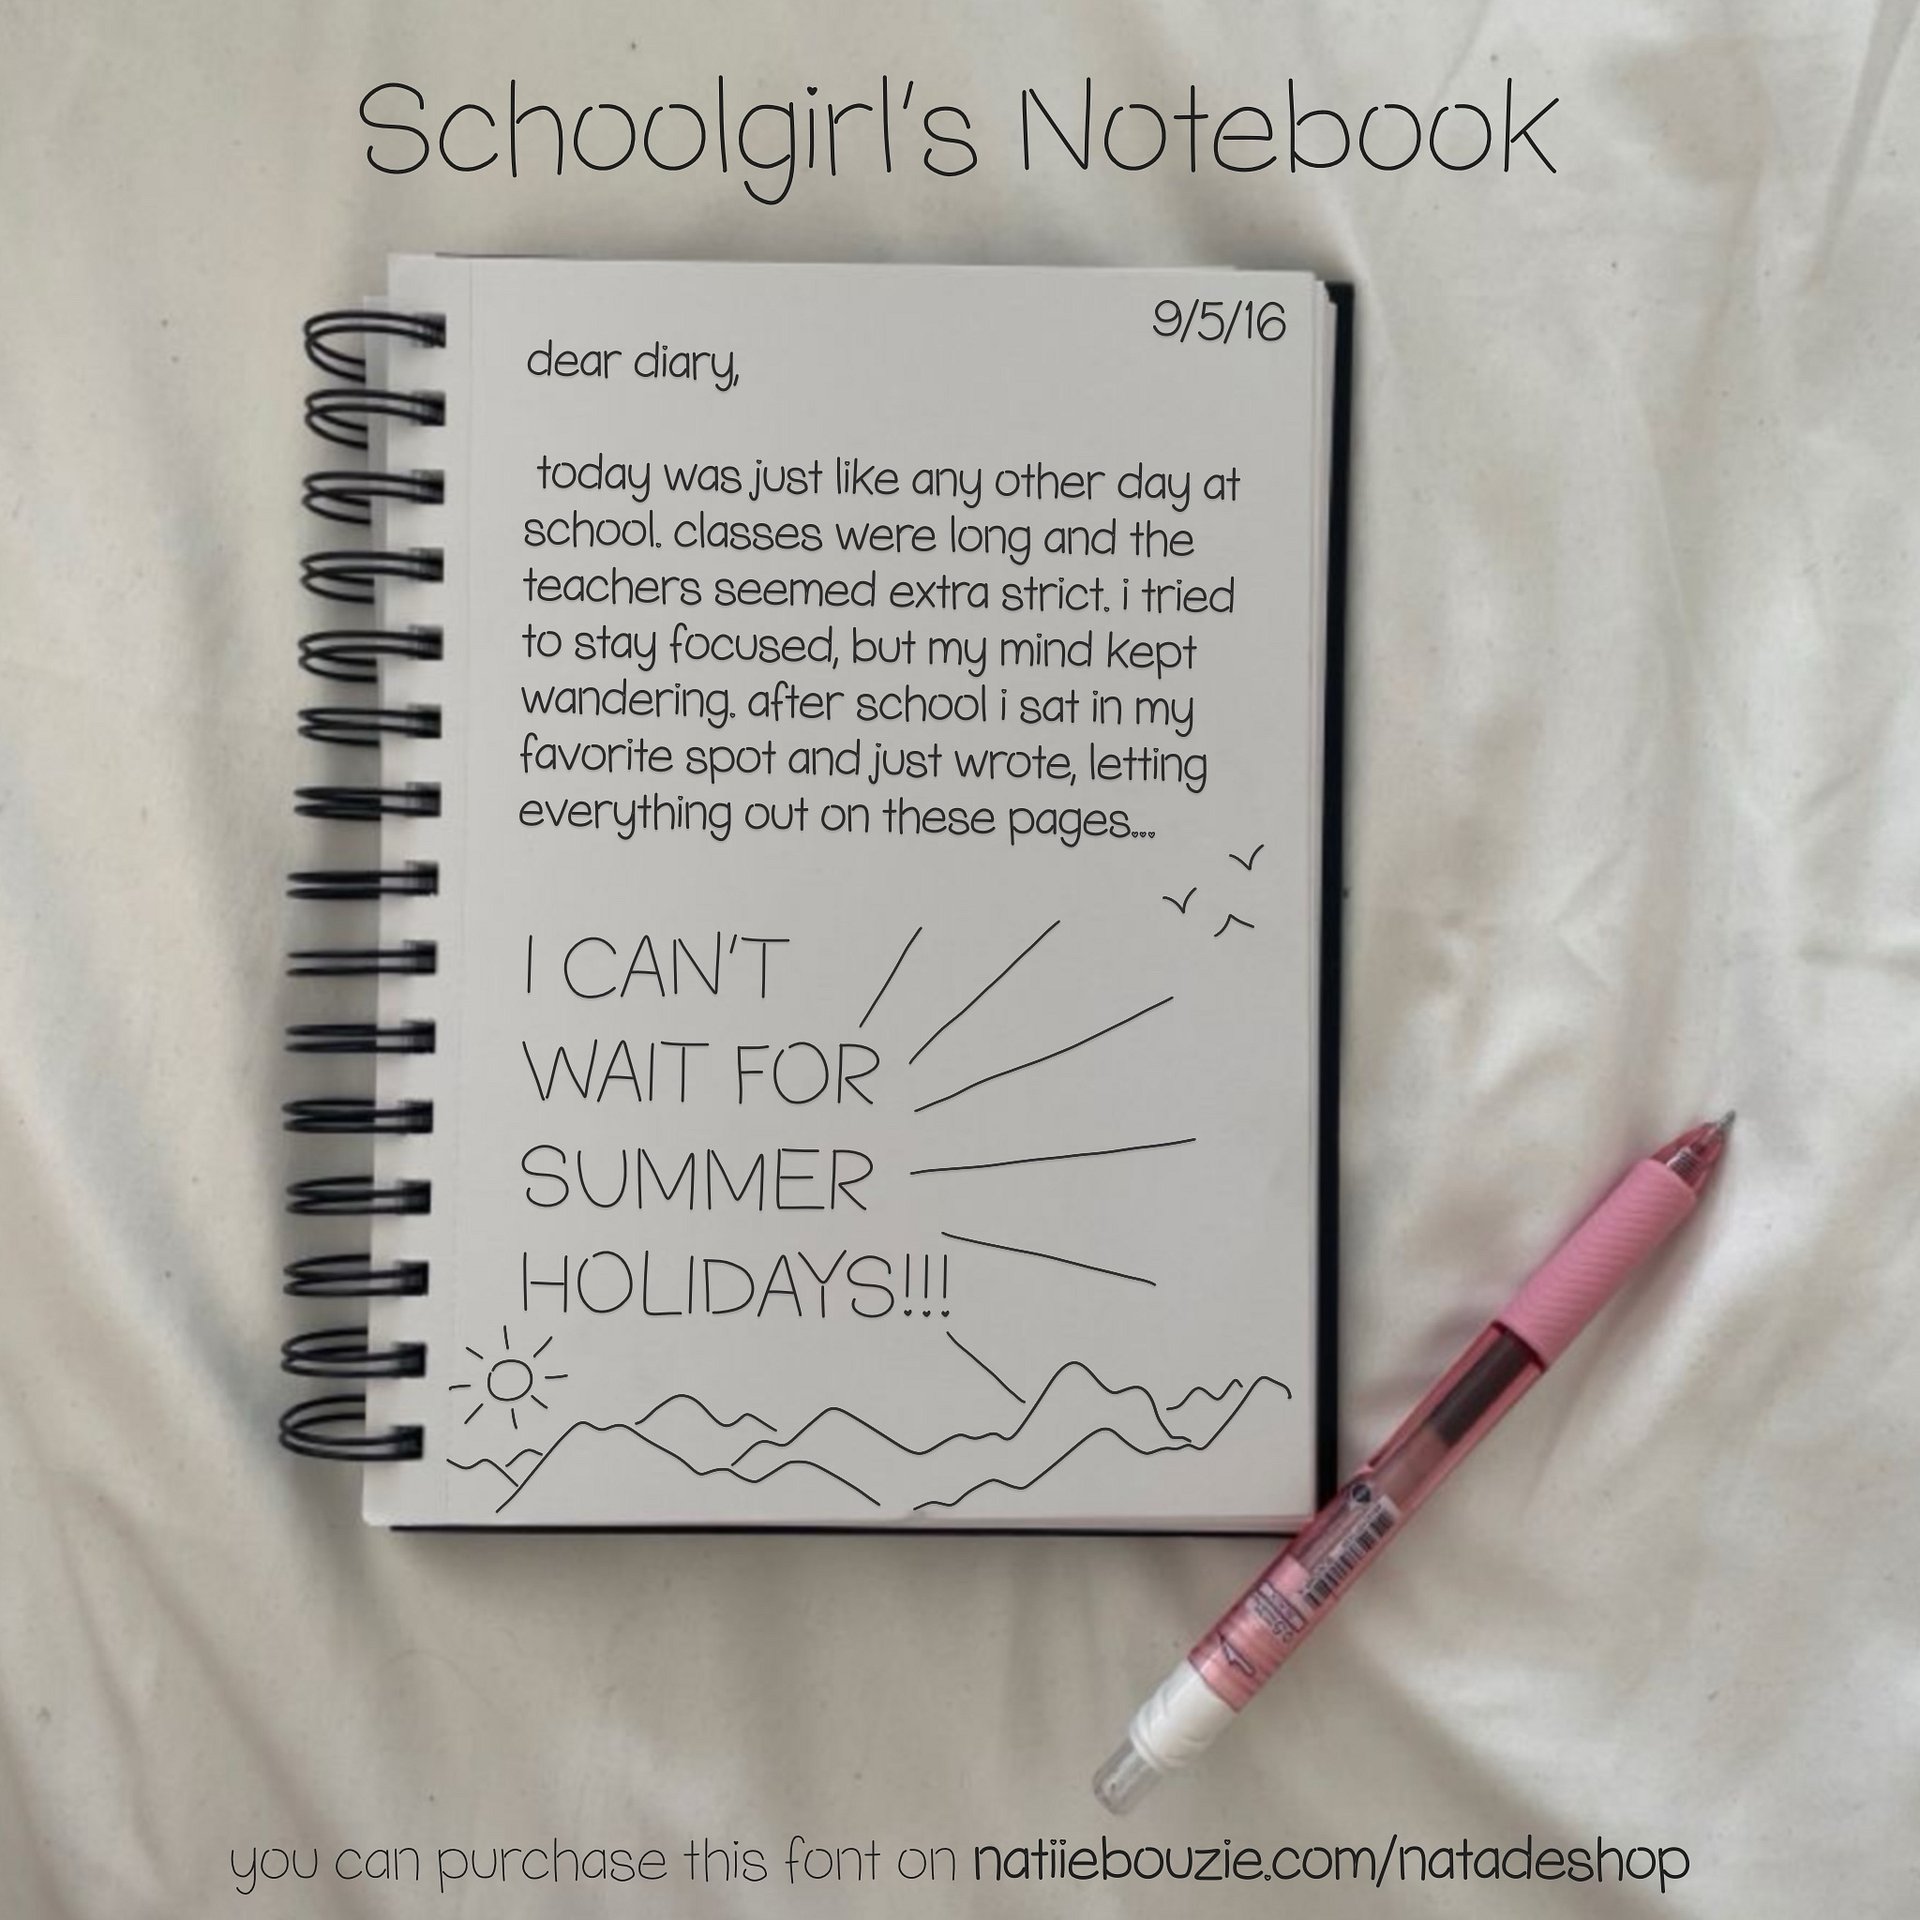 Schoolgirl's Notebook
9/5/16
dear diary,
today was just like any other day at
school. classes were long and the
teachers seemed extra strict. i tried
to stay focused, but my mind kept
wandering. after school i sat in my
favorite spot and just wrote, letting
everything out on these pages...
I CAN'T
WAIT FOR
SUMMER
HOLIDAYS!!!
you can purchase this font on natiiebouzie.com/natadeshop